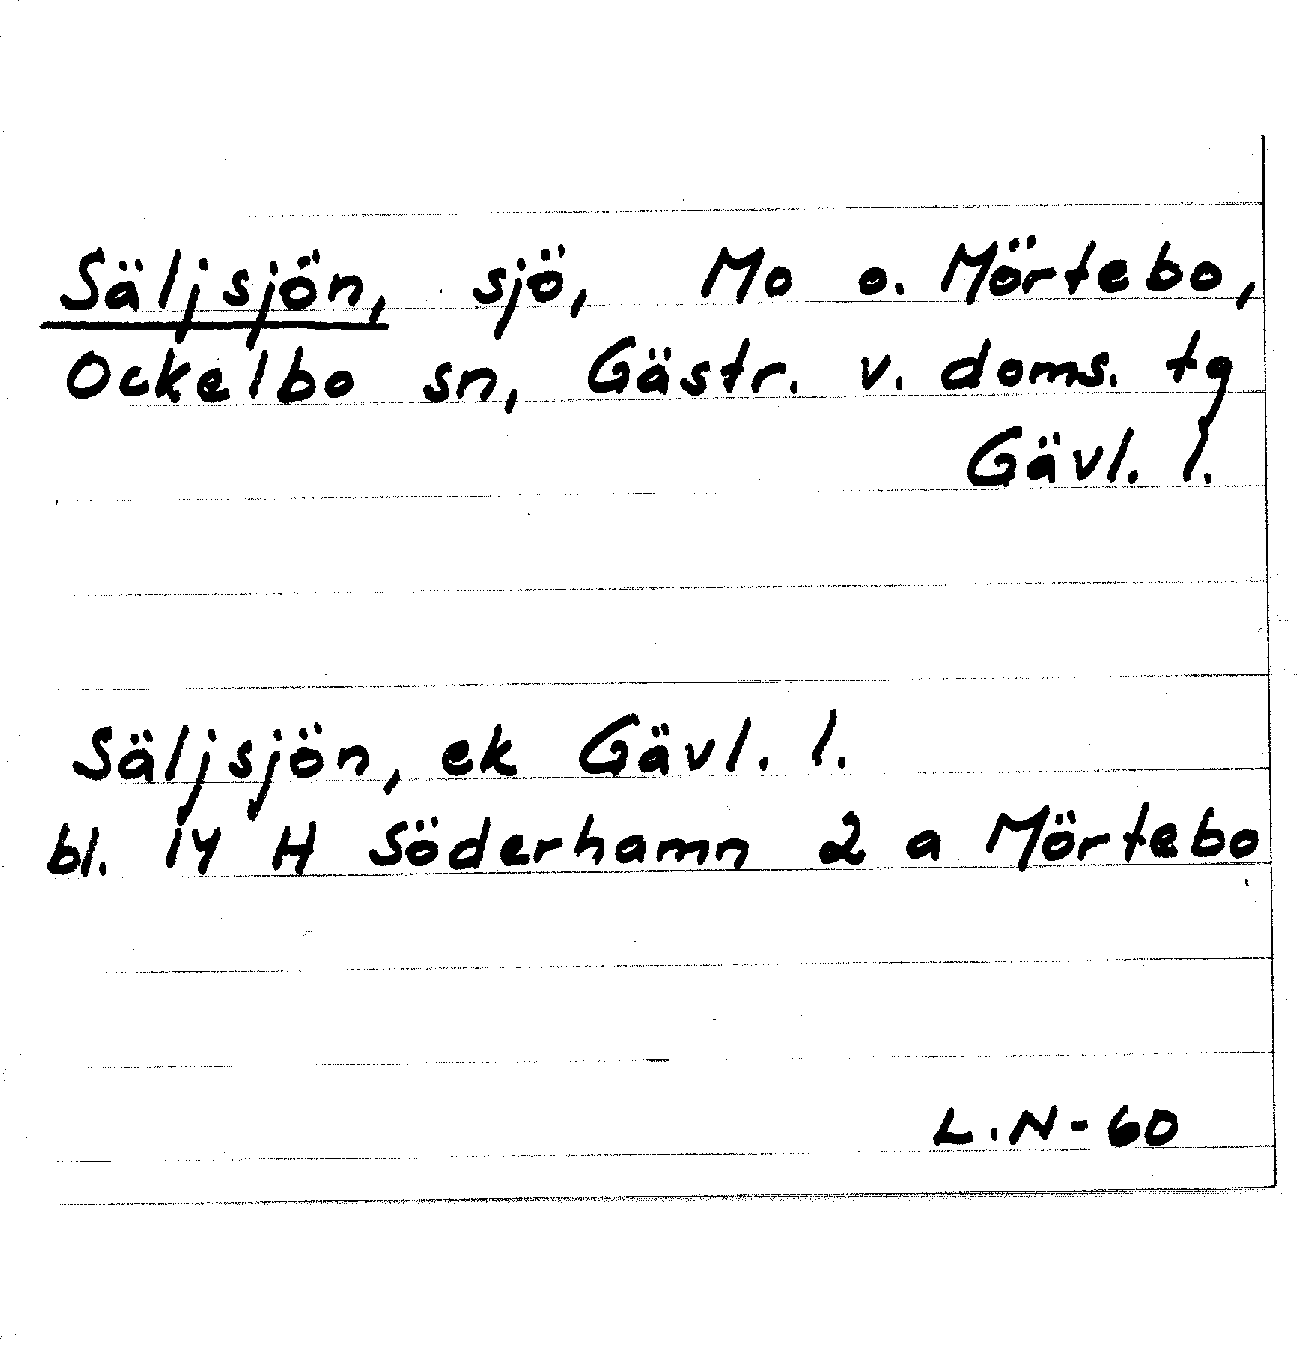 Säljsjön, sjö, Mo o. Mörtebo,
Ockelbo sn, Gästr. v. doms. tg
Gävl. l.
Säljsjön, ek Gävl. l.
bl. 14 H Söderhamn 2 a Mörtebo
L.N-60